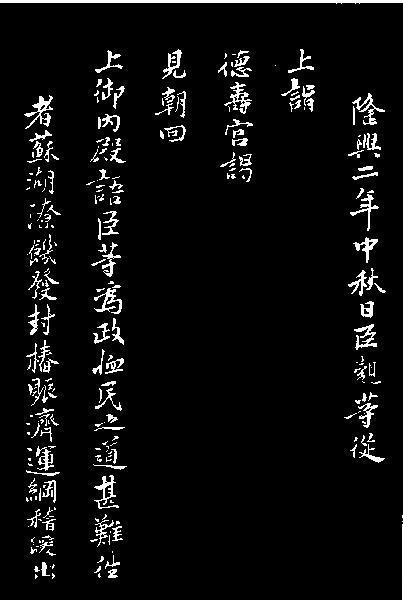 隆興二年中秋日臣覿等從
上詣
德壽宮謁
見朝回
上御内殿語臣等為政恤民之道甚難往
者蘇湖潦饑發封樁賑濟運綱稽緩出